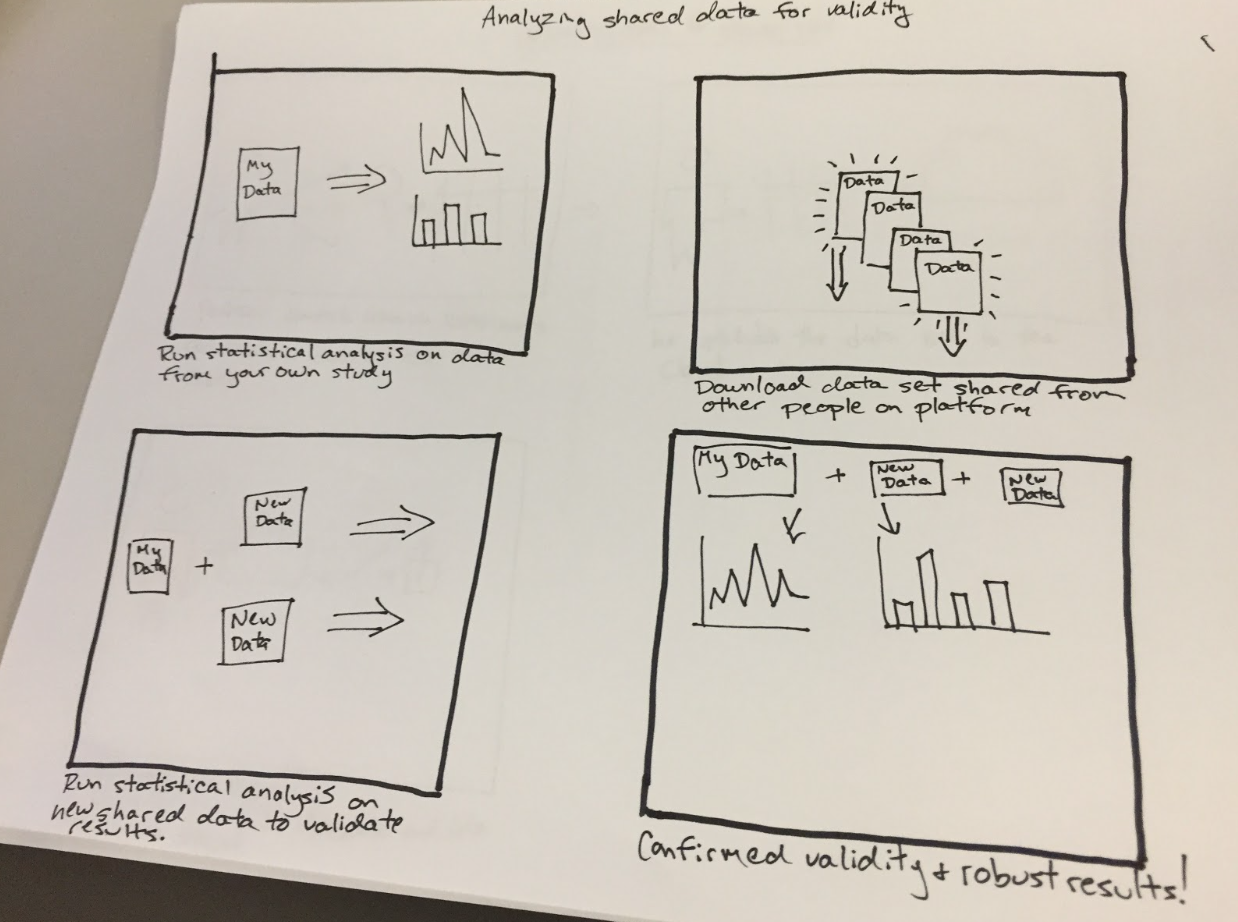 Analyzing shared data for validity
My
Data
Run statistical analysis on data
from your own study
Data
Data
Data
Data
Download data set shared from
other people on platform
My
Data
+
New
Data
New
Data
Run statistical analysis on
new shared data to validate
results.
My Data
+
New
Data
+
New
Data
Confirmed validity + robust results!